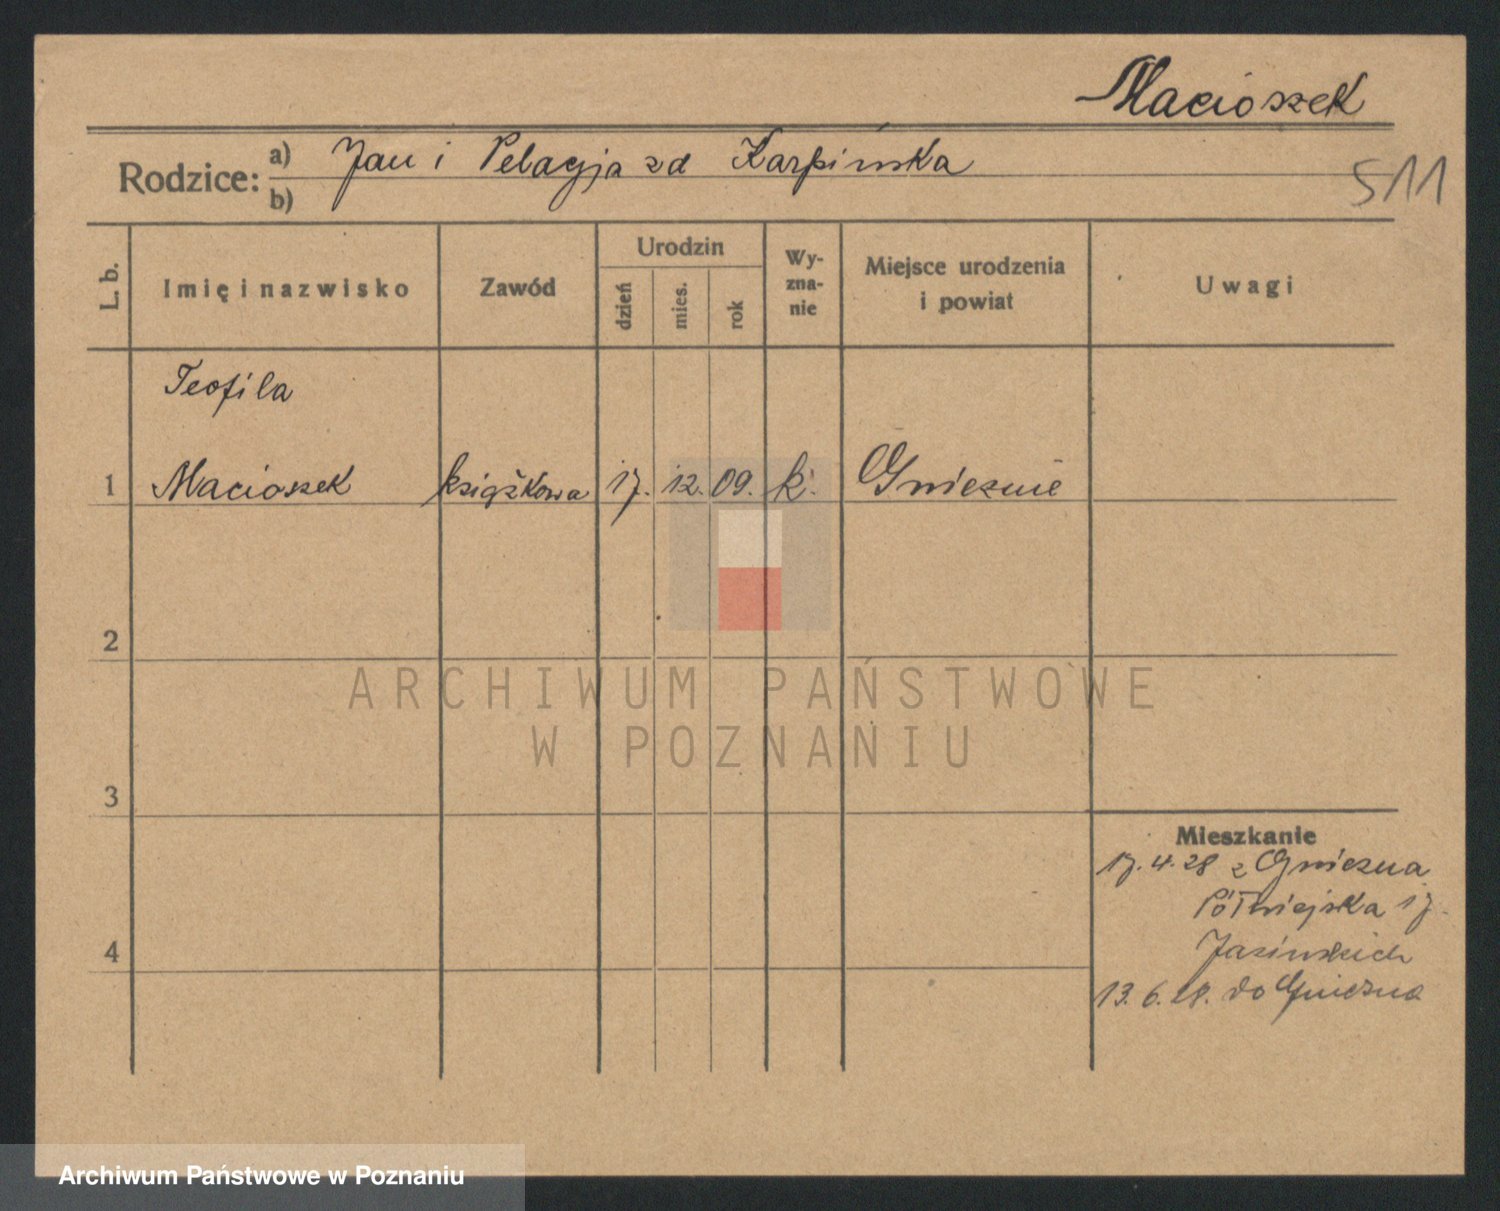 Macioszek
Rodzice: a) Jan i Pelagja zd Karpińska
b)
511
L. b. Imię i nazwisko Zawód Urodzin dzień mies. rok Wy-zna-nie Miejsce urodzenia i powiat Uwagi
Teofila
1 Macioszek książkowa 17. 12. 09. k. Gnieźnie
2
ARCHIWUM PAŃSTWOWE
W POZNANIU
3
Mieszkanie
17.4.28 z Gniezna
Półwiejska 17.
Jasińskich
4
13.6.28. do Gniezna
Archiwum Państwowe w Poznaniu